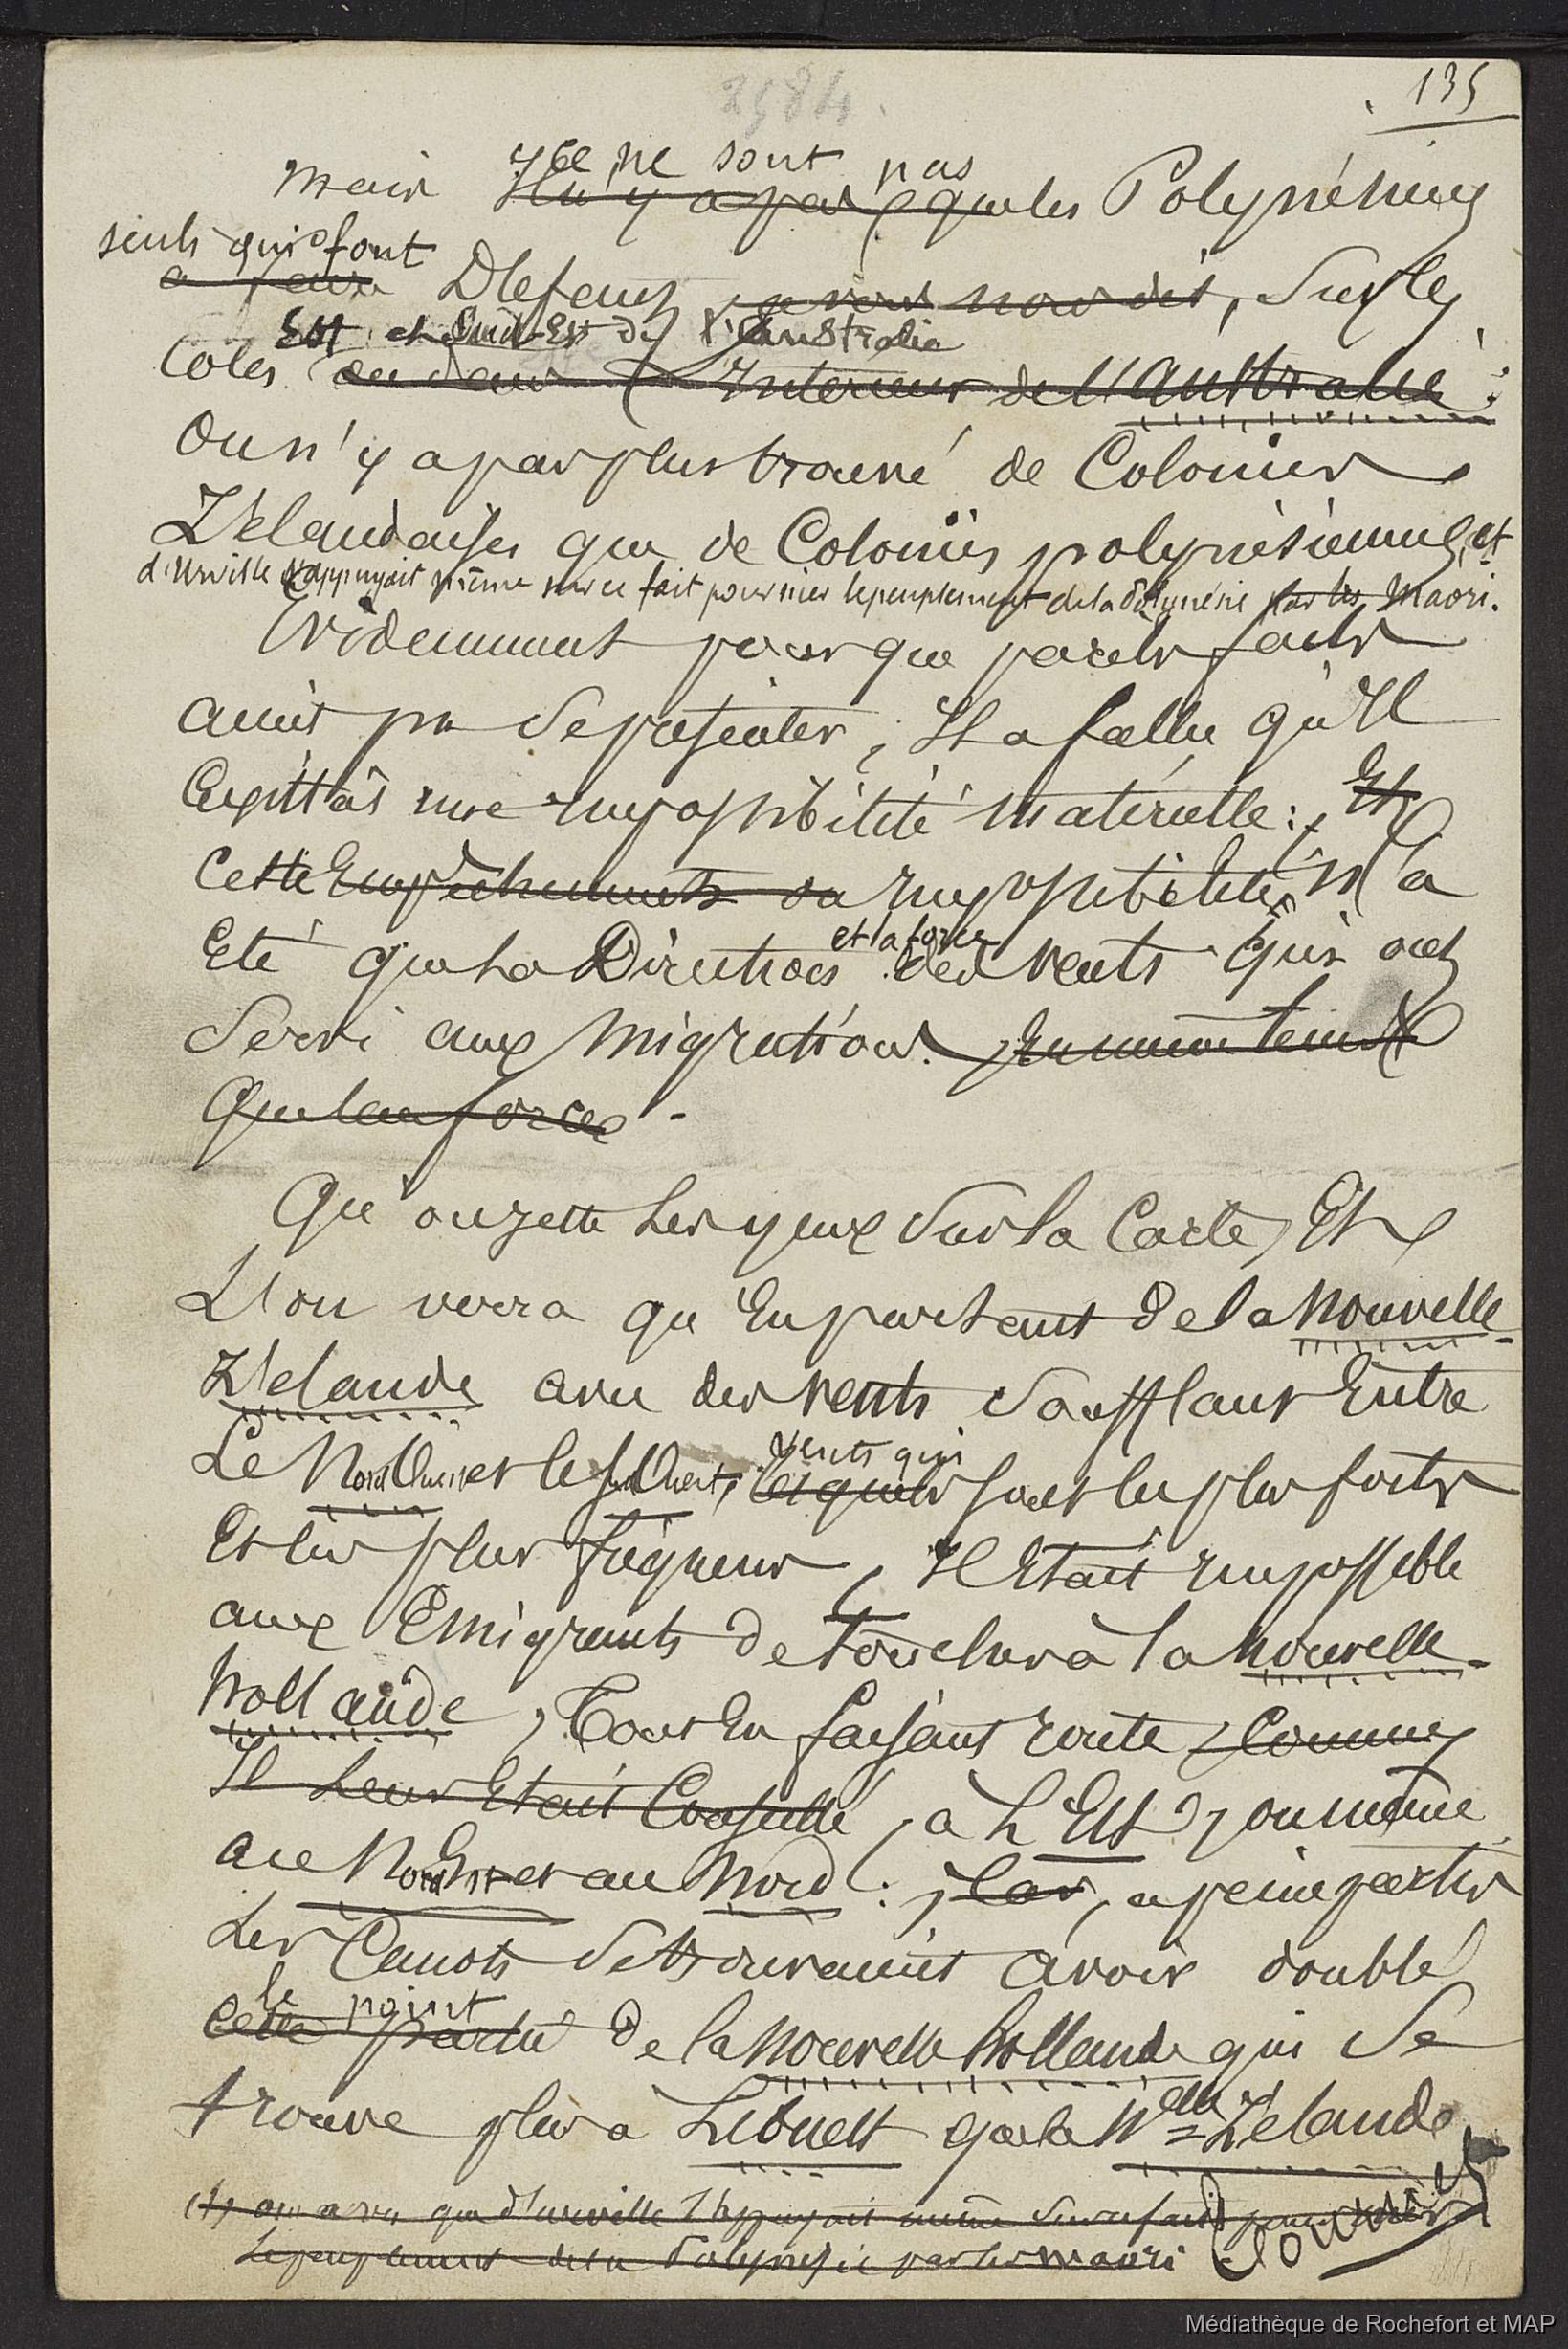 2584.
135
mais Ce ne sont pas Il n'y a pas que les Polynésiens
seuls qui font
a faire Défaut, je viens nous dit, Sur les
Est et Sud-Est de l'Australie
Côtes ou dans l'Intérieur de l'Australie :
On n'y a pas plus trouvé de Colonies
Zélandaises que de Colonies polynésiennes, et
d'Urville s'appuyait même sur ce fait pour nier le peuplement de la Polynésie par les Maori.
Evidemment pour que pareils faits
aient pu se présenter, Il a fallu qu'Il
Existât une impossibilité matérielle : Et
Cette Empêchements ou impossibilité, n'a
Eté que la Direction et la force des vents qui ont
Servi aux Migrations. En même temps
Que leur force -
Qu'on jette les yeux sur la Carte, Et
L'on verra qu'En partant de la Nouvelle-
Zélande avec des vents Soufflant Entre
Le Nord Ouest et le Sud Ouest, vents qui lesquels sont les plus forts
Et les plus fréquents, Il Etait impossible
aux Emigrants de toucher à la Nouvelle-
Hollande, Tout En faisant route, Comme
Il Leur Etait Conseillé, à L'Est, ou même
au Nord Est et au Nord : Car, à peine partis
Les Canots se trouvaient avoir doublé
le point
Cette partie de la Nouvelle Hollande qui Se
trouve plus à L'Ouest que la Nelle=Zélande
(1) on a vu que d'Urville s'appuyait même sur ce fait pour nier
Le peuplement de la Polynésie par les Maori
Médiathèque de Rochefort et MAP